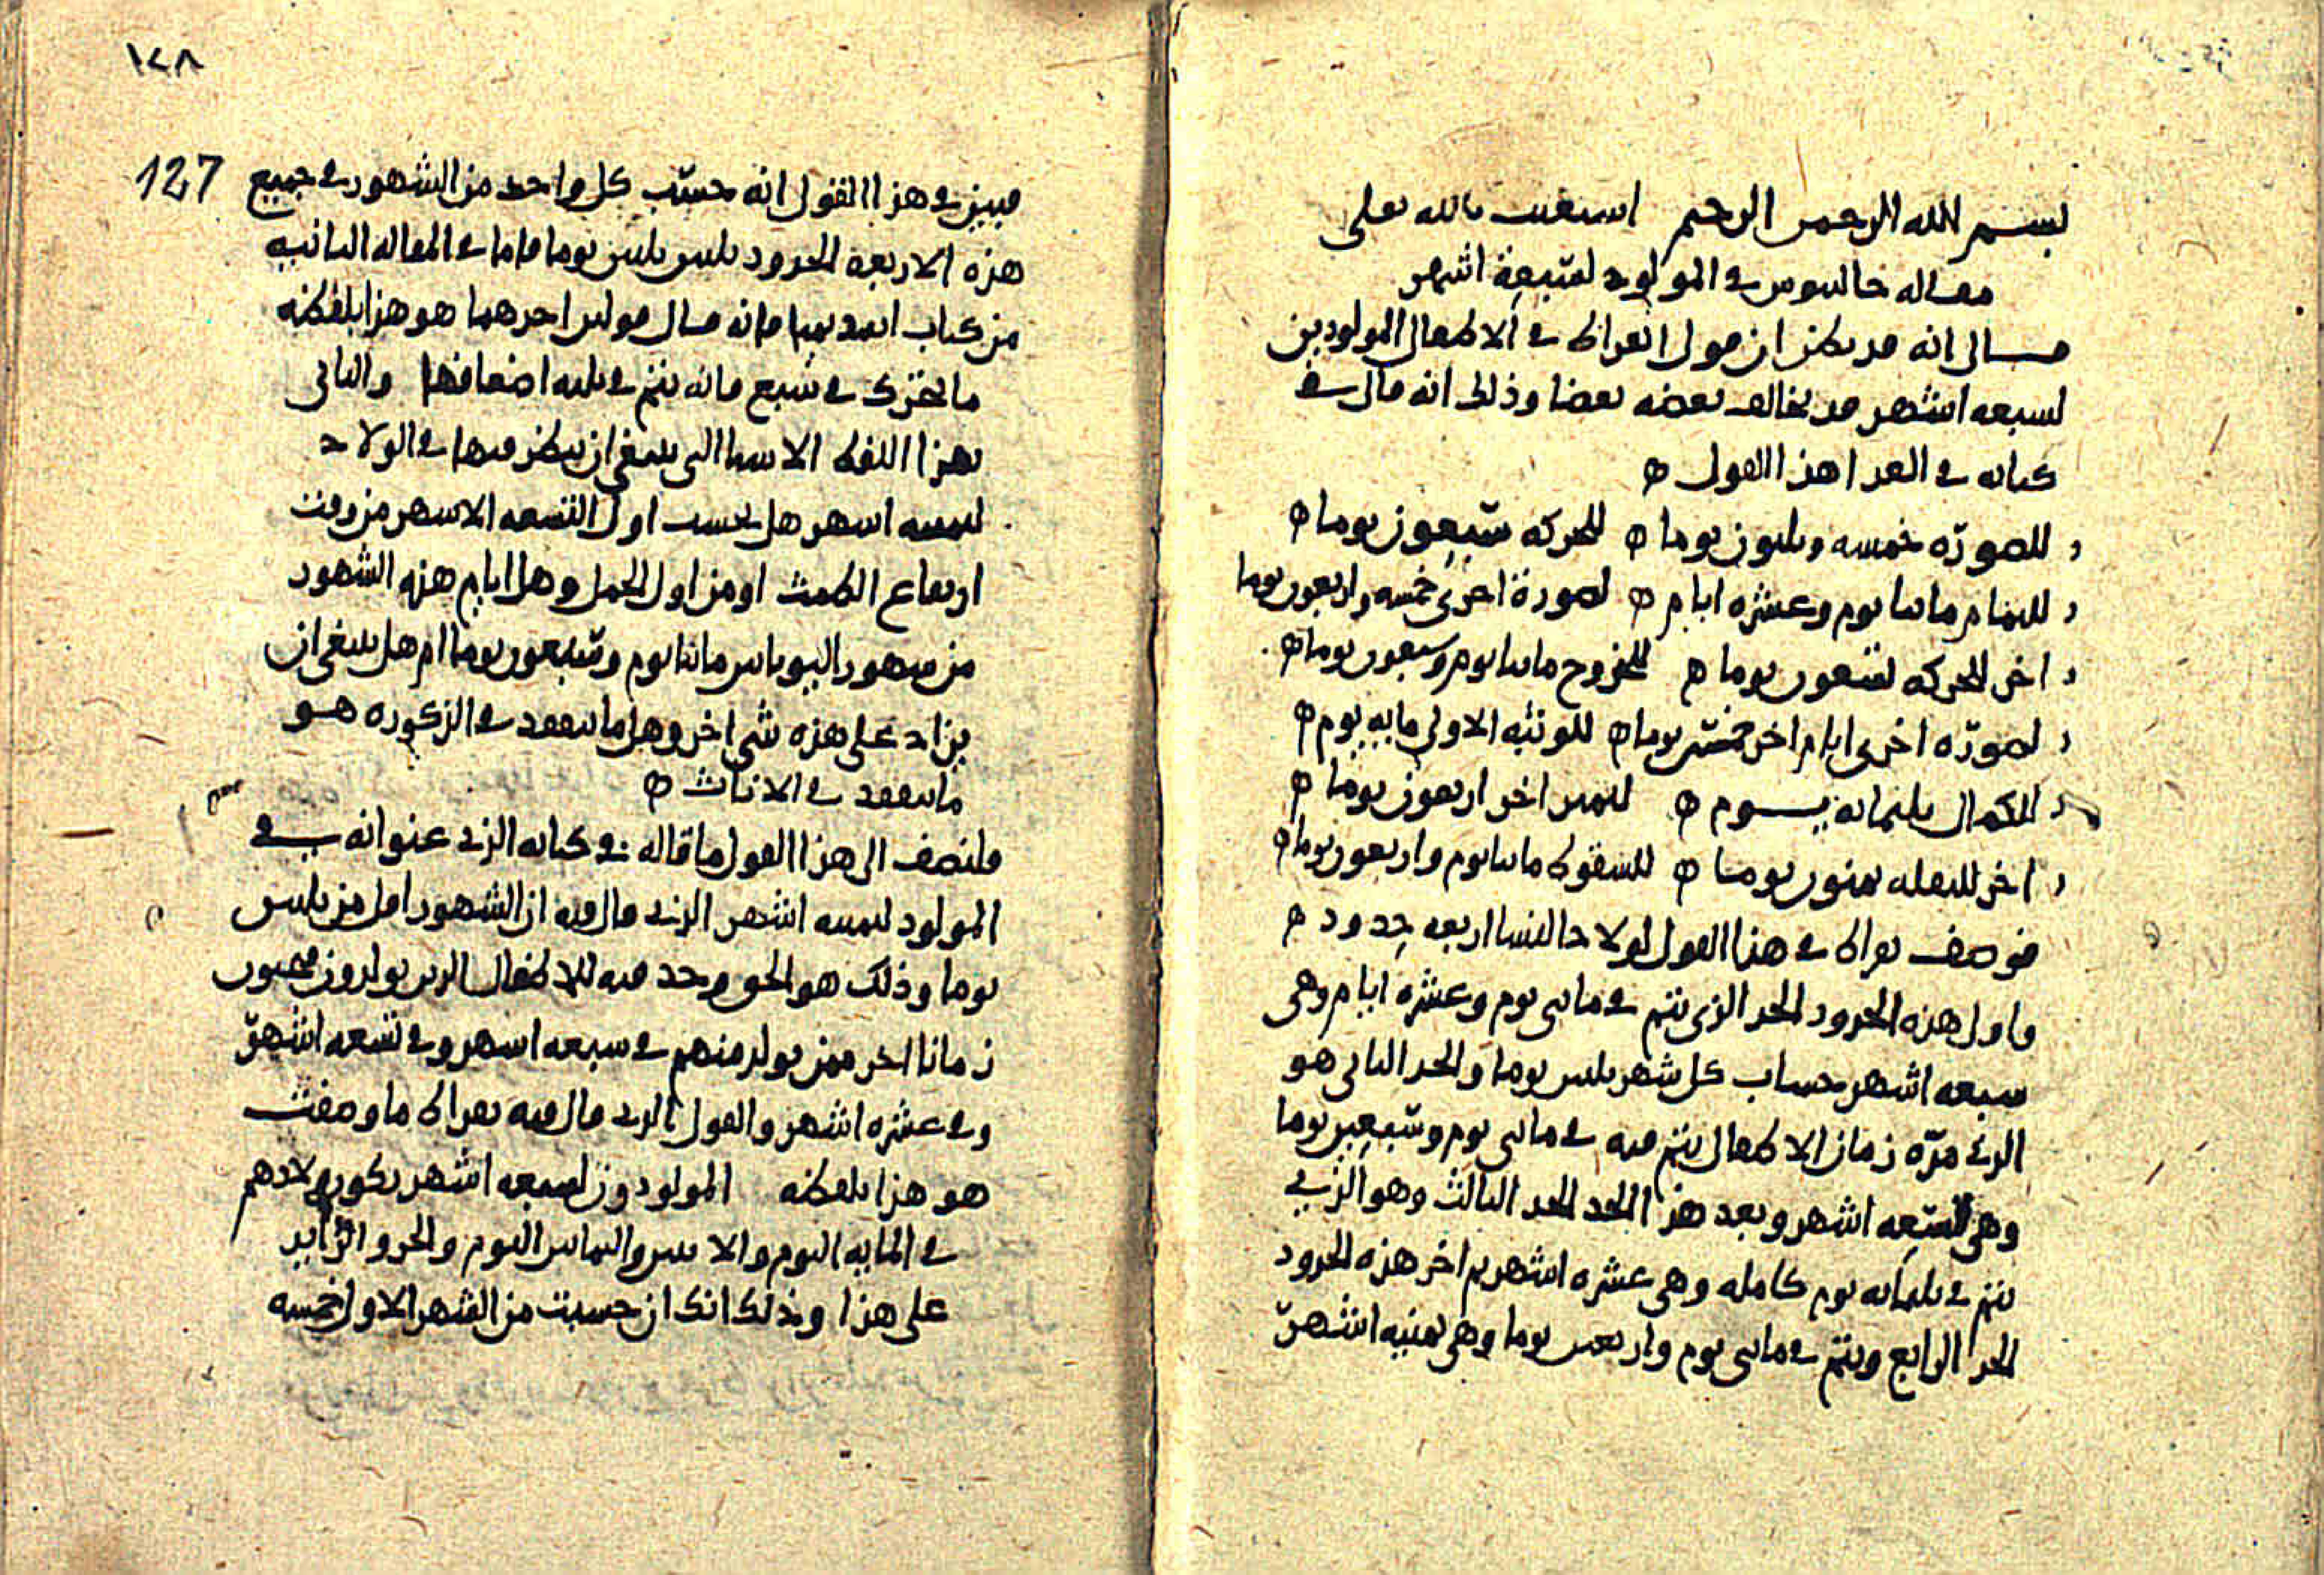 بسم الله الرحمن الرحيم استعنت بالله تعلى
مقاله جالينوس في المولود لسبعة اشهر
قال انه قد يظن ان قول ابقراط في الاطفال المولودين
لسبعه اشهر قد يخالف بعضه بعضا وذلك انه قال في
كتابه في الغذا هذا القول ه
للصورة خمسه وثلثون يوما ه للحركه سبعون يوما ه
للتمام مائتا يوم وعشره ايام ه لصورة اخرى خمسه واربعون يوما
اخر للحركه تسعون يوما ه للخروج مائتا يوم وسبعون يوما ه
لصورة اخرى ايام اخر خمسين يوما ه للوثبه الاولى مايه يوم ه
للكمال ثلثمائه يوم ه للتميز اخر اربعون يوما ه
اخر للنقله ثمنون يوما ه للسقوط مائتا يوم واربعون يوما ه
فوصف بقراط في هذا القول لولاد النسا اربعه حدود ه
فاول هذه الحدود الحد الذي يتم في مائتي يوم وعشره ايام وهي
سبعه اشهر بحساب كل شهر ثلثين يوما والحد الثاني هو
الذي مدة زمان الاطفال يتم فيه في مائتي يوم وسبعين يوما
وهي تسعه اشهر وبعد هذا الحد الحد الثالث وهو الذي
يتم في ثلثمائه يوم كامله وهي عشره اشهر ثم اخر هذه الحدود
الحد الرابع ويتم في مائتي يوم واربعين يوما وهي ثمنيه اشهر
١٢٨
127
فبين في هذا القول انه حسب كل واحد من الشهور في جميع
هذه الاربعة الحدود ثلثين ثلثين يوما فاما في المقاله الثانيه
من كتاب ابيديميا فانه قال قولين احدهما هو هذا بلفظه
ما تحرك في سبع فانه يتم في ثلثه اضعافها والثاني
بهذا اللفظ الاشيا التي ينبغي ان ينظر فيها في الولاد
لثمنيه اشهر هل يحسب اول التسعه الاشهر من وقت
ارتفاع الطمث او من اول الحمل وهل ايام هذه الشهور
من شهور اليونانيين مائتا يوم وسبعون يوما ام هل ينبغي ان
يزاد على هذه شي اخر وهل ما ينعقد في الذكوره هو
ما ينعقد في الاناث ه
فلنضف الى هذا القول ما قاله في كتابه الذي عنوانه في
المولود لثمنيه اشهر الذي قال فيه ان الشهور اقل من ثلثين
يوما وذلك هو الحق وحدد فيه للاطفال الذين يولدون
زمانا اخر ممن يولد منهم في سبعه اشهر وفي تسعه اشهر
وفي عشره اشهر والقول الذي قال فيه بقراط ما وصفت
هو هذا بلفظه المولودون لسبعه اشهر يكون ولادهم
في المايه اليوم والاثنين والثمانين اليوم والجزو الزايد
على هذا وذلك انك ان حسبت من الشهر الاول خمسه